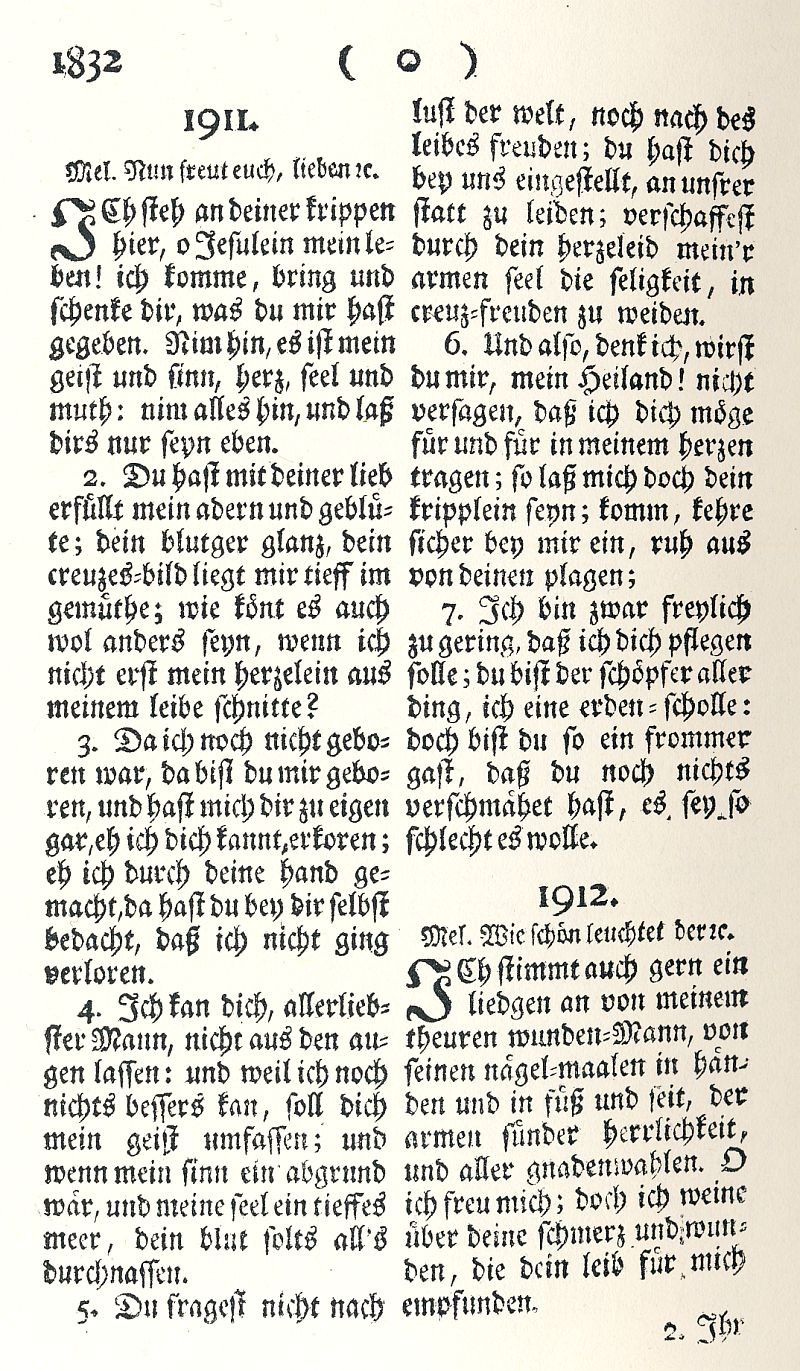 1832 ( o )
1911.
Mel. Nun freut euch, lieben ꝛc.
ICh steh an deiner krippen
hier, o Jesulein mein le=
ben! ich komme, bring und
schenke dir, was du mir hast
gegeben. Nim hin, es ist mein
geist und sinn, herz, seel und
muth: nim alles hin, und laß
dirs nur seyn eben.
2. Du hast mit deiner lieb
erfüllt mein adern und geblü=
te; dein blutger glanz, dein
creuzes=bild liegt mir tieff im
gemüthe; wie könt es auch
wol anders seyn, wenn ich
nicht erst mein herzelein aus
meinem leibe schnitte?
3. Da ich noch nicht gebo=
ren war, da bist du mir gebo=
ren, und hast mich dir zu eigen
gar, eh ich dich kannt, erkoren;
eh ich durch deine hand ge=
macht, da hast du bey dir selbst
bedacht, daß ich nicht ging
verloren.
4. Ich kan dich, allerlieb=
ster Mann, nicht aus den au=
gen lassen: und weil ich noch
nichts bessers kan, soll dich
mein geist umfassen; und
wenn mein sinn ein abgrund
wär, und meine seel ein tieffes
meer, dein blut solts all's
durchnassen.
5. Du fragest nicht nach
lust der welt, noch nach des
leibes freuden; du hast dich
bey uns eingestellt, an unsrer
statt zu leiden; verschaffest
durch dein herzeleid mein'r
armen seel die seligkeit, in
creuz=freuden zu weiden.
6. Und also, denk ich, wirst
du mir, mein Heiland! nicht
versagen, daß ich dich möge
für und für in meinem herzen
tragen; so laß mich doch dein
kripplein seyn; komm, kehre
sicher bey mir ein, ruh aus
von deinen plagen;
7. Ich bin zwar freylich
zu gering, daß ich dich pflegen
solle; du bist der schöpfer aller
ding, ich eine erden=scholle:
doch bist du so ein frommer
gast, daß du noch nichts
verschmähet hast, es sey so
schlecht es wolle.
1912.
Mel. Wie schön leuchtet der ꝛc.
ICh stimmt auch gern ein
liedgen an von meinem
theuren wunden=Mann, von
seinen nägel=maalen in hän=
den und in füß und seit, der
armen sünder herrlichkeit,
und aller gnadenwahlen. O
ich freu mich; doch ich weine
über deine schmerz und wun=
den, die dein leib für mich
empfunden.
2. Ihr